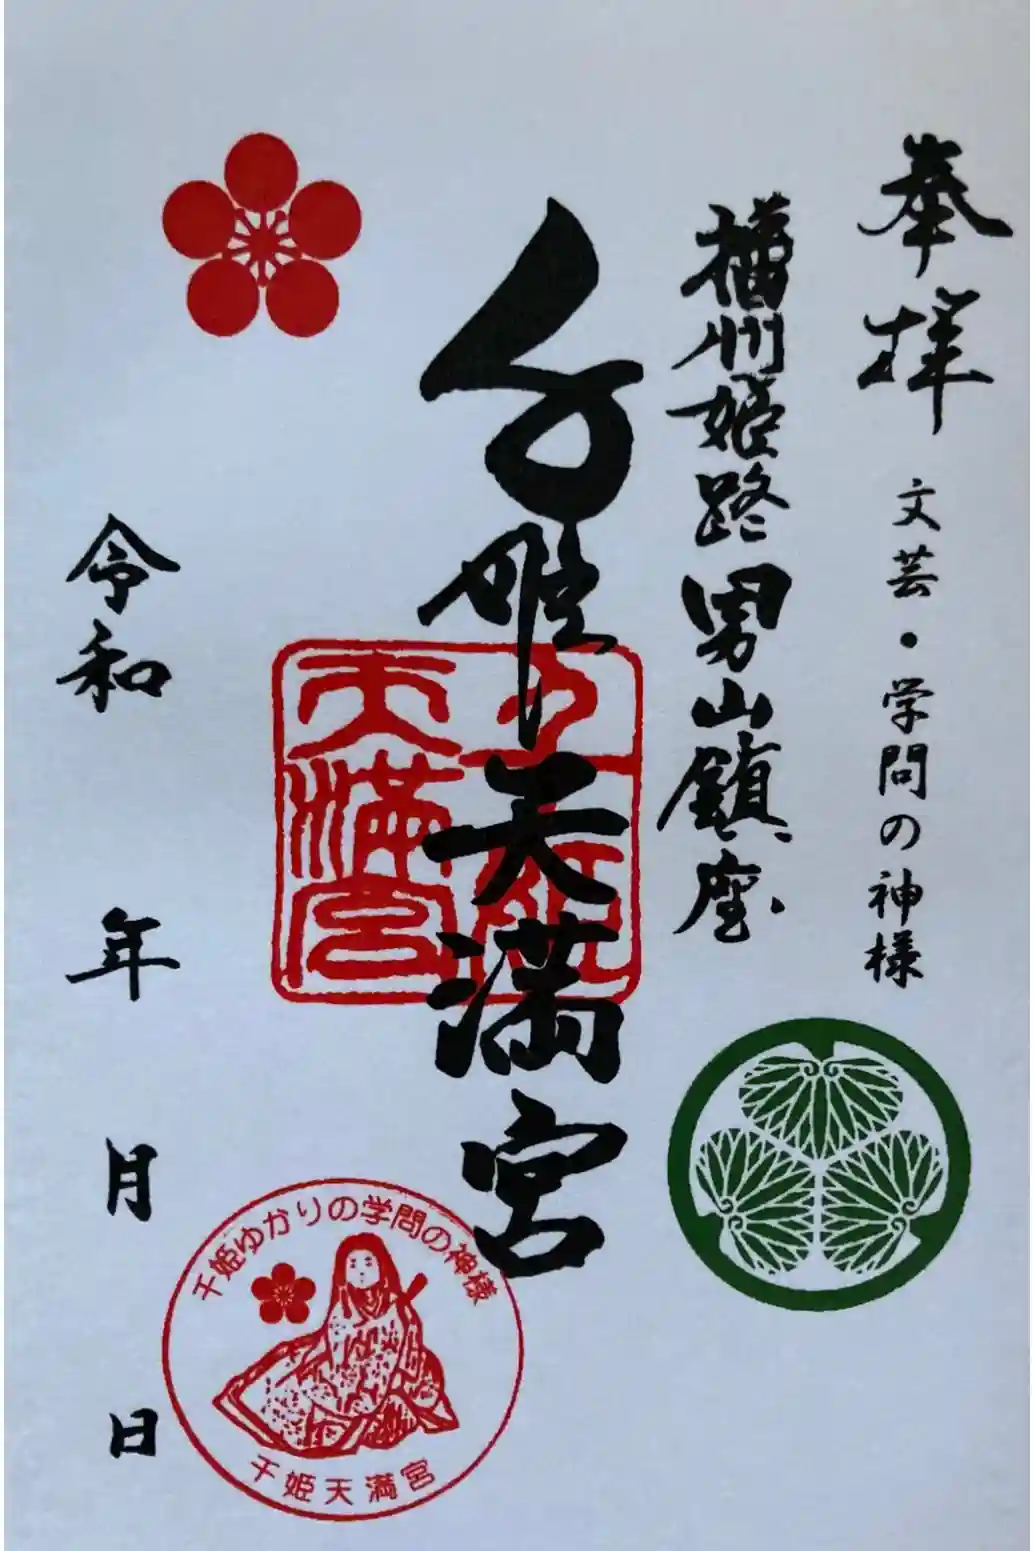 奉拝
文芸・学問の神様
播州姫路男山鎮座
千姫天満宮
千姫
天満宮
令和 年 月 日
千姫ゆかりの学問の神様
千姫天満宮